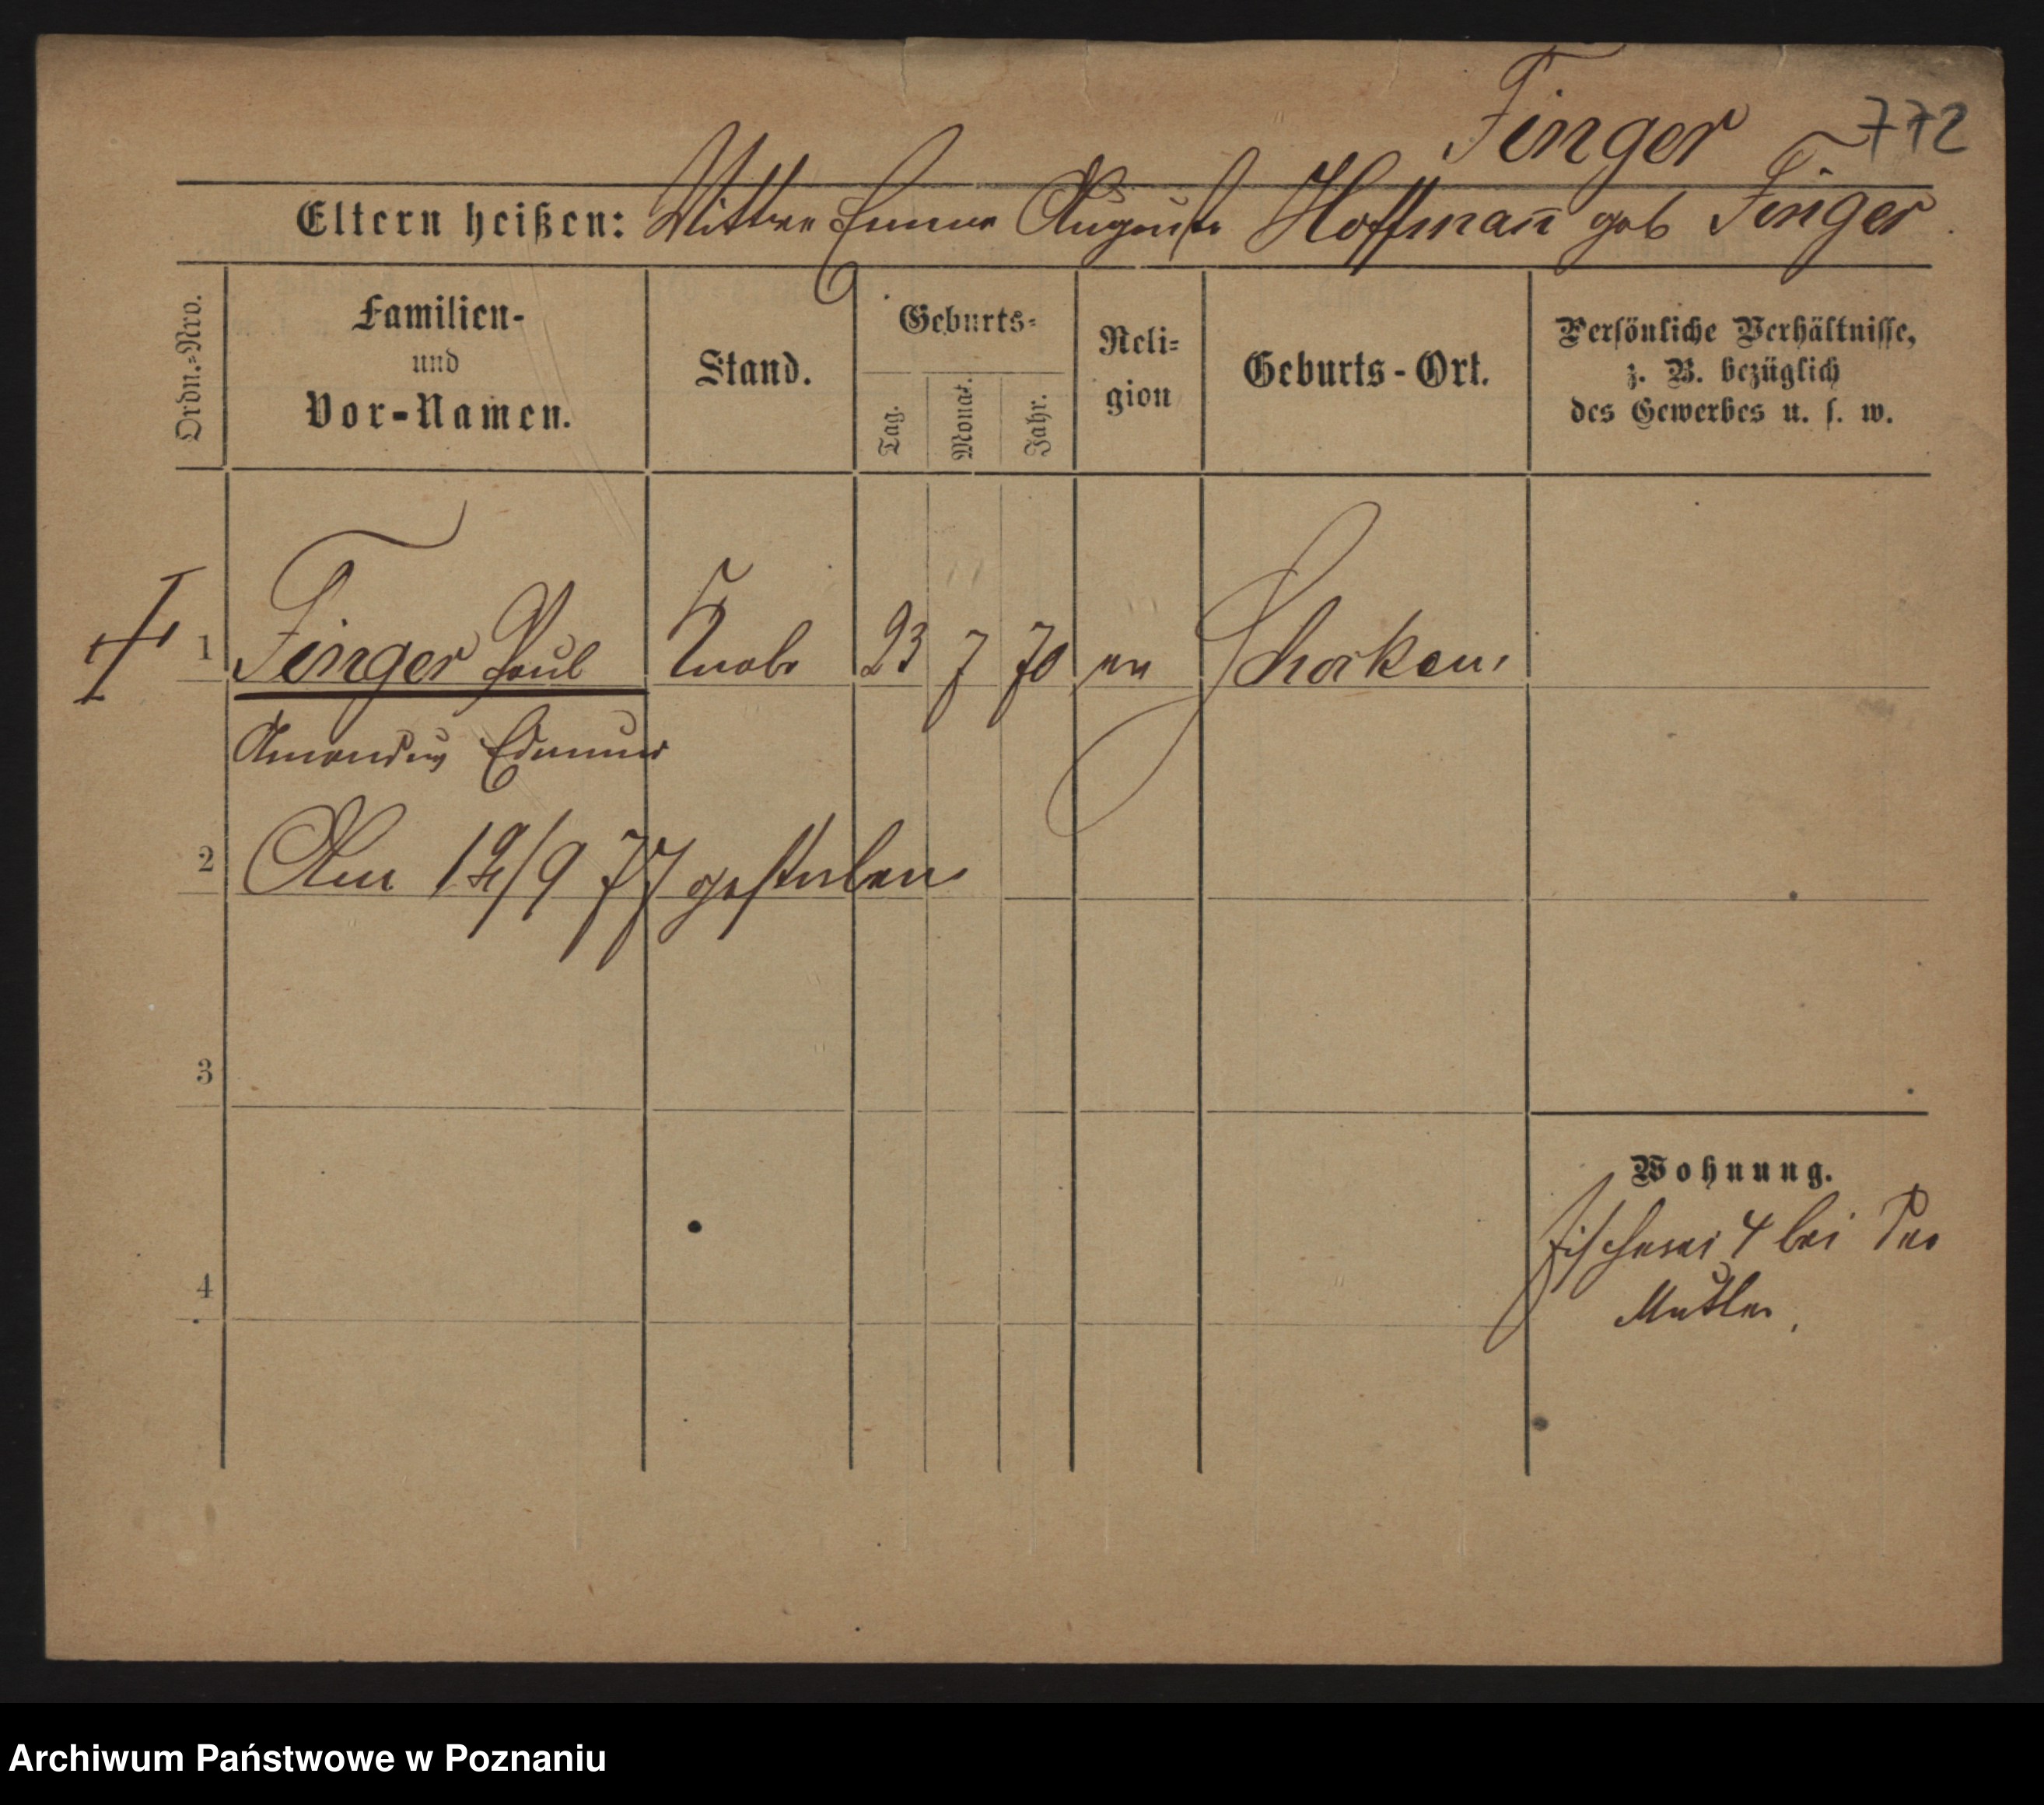 Finger 772
Eltern heißen: Wittwe Emma Auguste Hoffmañ geb Finger
Ordn.-Nro.
Familien-
und
Vor-Namen.
Stand.
Geburts-
Tag.
Monat.
Jahr.
Reli-
gion
Geburts-Ort.
Persönliche Verhältnisse,
z. B. bezüglich
des Gewerbes u. s. w.
1 Finger Paul Knabe 23 7 70 ev Schocken
Amandus Edmund
2 Am 12/9 77 gestorben
3
Wohnung.
Fischerei 4 bei der
Mutter.
4
Archiwum Państwowe w Poznaniu